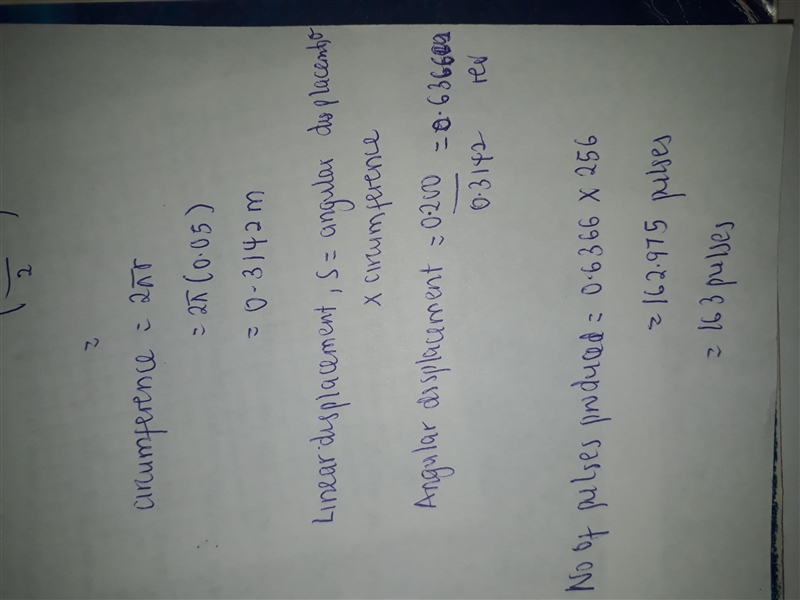 ( — )
2
=
circumference = 2πr
= 2π(0.05)
= 0.3142m
Linear displacement, S = angular displacement
x circumference
Angular displacement = 0.200 = 0.6366 rev
0.3142
No of pulses produced = 0.6366 X 256
= 162.975 pulses
= 163 pulses